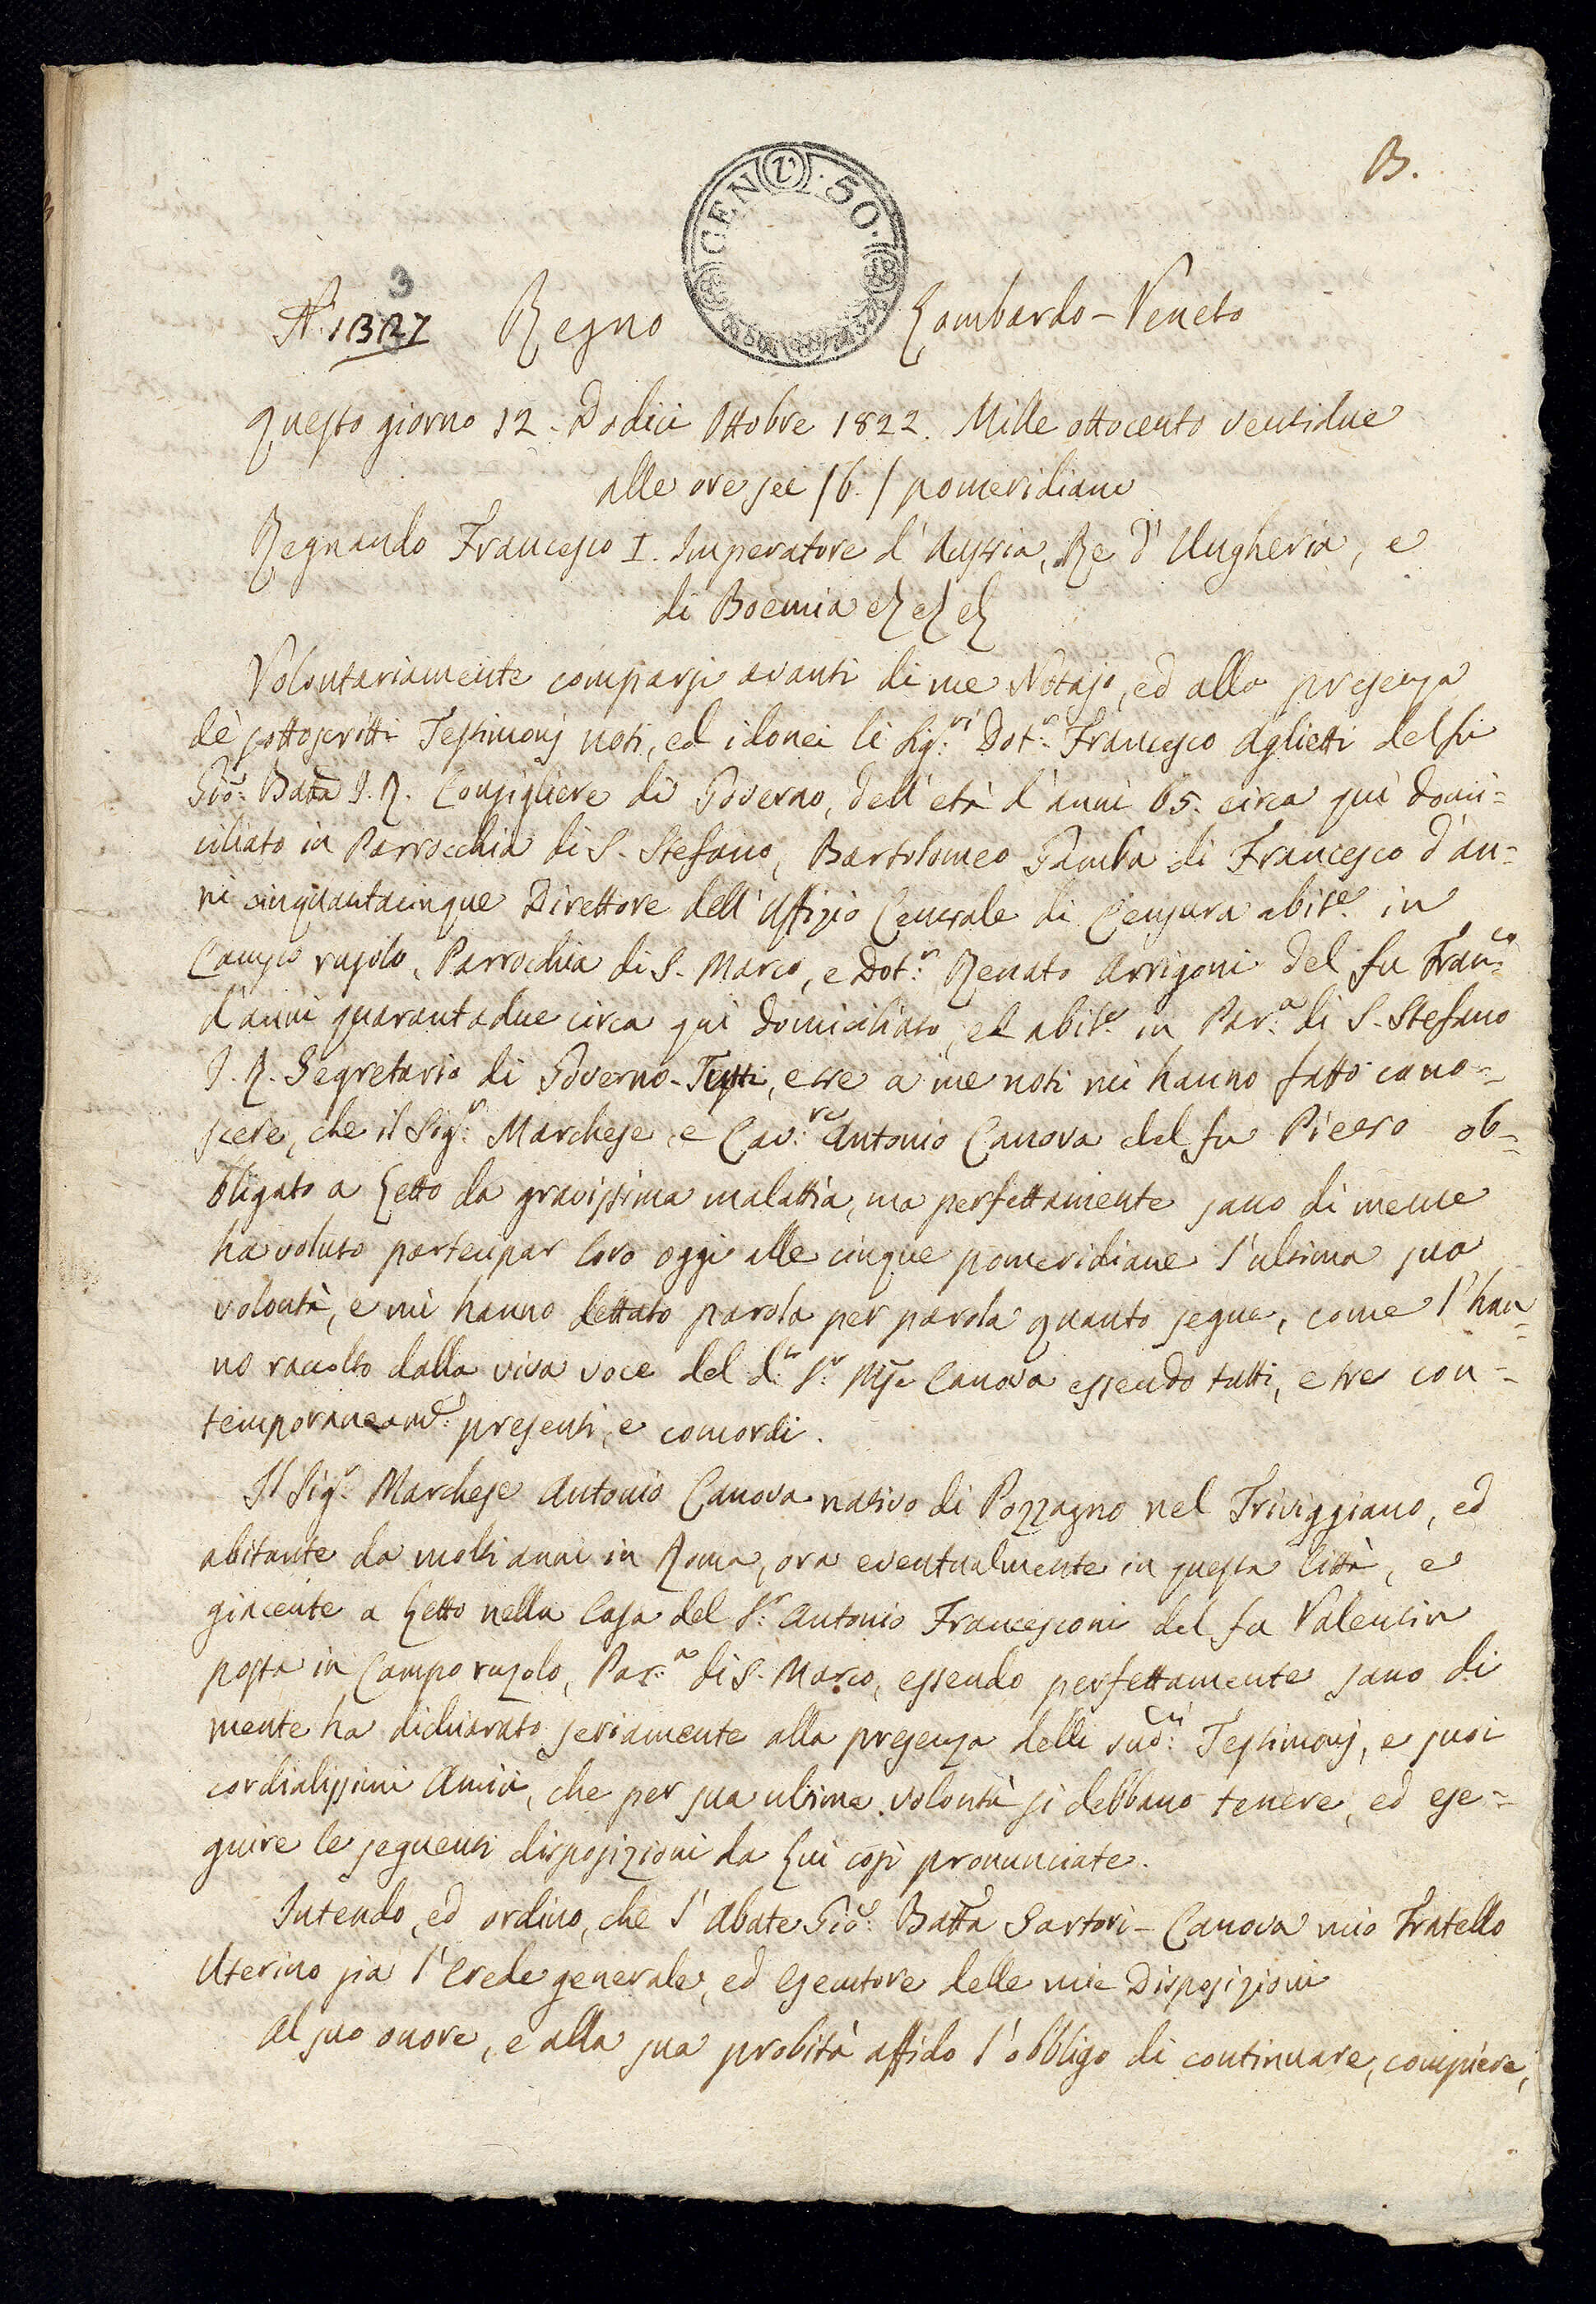 B.
CEN V. 50.
3
N.º 1327 Regno Lombardo-Veneto
Questo giorno 12. Dodici Ottobre 1822. Mille ottocento ventidue
alle ore sei /6./ pomeridiane
Regnando Francesco I. Imperatore d'Austria, Re d'Ungheria, e
di Boemia
Volontariamente comparsi avanti di me Notajo, ed alla presenza
dè sottoscritti Testimonj noti, ed idonei li Sig.ri Dot.r Francesco Aglietti del fu
Gio: Batta I. R. Consigliere di Governo, dell'età d'anni 65. circa quì domi=
ciliato in Parrocchia di S. Stefano, Bartolomeo Gamba di Francesco d'an=
ni cinquantacinque Direttore dell'Uffizio Centrale di Censura abit.e in
Campo rusolo, Parrocchia di S. Marco, e Dot.r Renato Arrigoni del fu Fran.co
d'anni quarantadue circa quì domiciliato, ed abit.e in Par.a di S. Stefano
I. R. Segretario di Governo - Tutti, e tre a me noti mi hanno fatto cono=
scere, che il Sig.r Marchese, e Cav.re Antonio Canova del fu Pietro ob=
bligato a Letto da gravissima malattia, ma perfettamente sano di mente
ha voluto partecipar loro oggi alle cinque pomeridiane l'ultima sua
volontà, e mi hanno dettato parola per parola quanto segue, come l'han=
no raccolto dalla viva voce del d.o S.r Mse Canova essendo tutti, e tre con=
temporaneam.e presenti, e concordi.
Il Sig.r Marchese Antonio Canova nativo di Pozzagno nel Triviggiano, ed
abitante da molti anni in Roma, ora eventualmente in questa Città, e
giacente a Letto nella Casa del S.r Antonio Francesconi del fu Valentin
posta in Campo rusolo, Par.a di S. Marco, essendo perfettamente sano di
mente ha dichiarato seriamente alla presenza delli sud.ti Testimonj, e suoi
cordialissimi Amici, che per sua ultima volontà si debbano tenere, ed ese=
guire le seguenti disposizioni da Lui così pronunciate.
Intendo, ed ordino, che l'Abate Gio: Batta Sartori-Canova mio Fratello
Uterino sia l'Erede generale, ed Esecutore delle mie Disposizioni
Al suo onore, e alla sua probità affido l'obbligo di continuare, compiere,